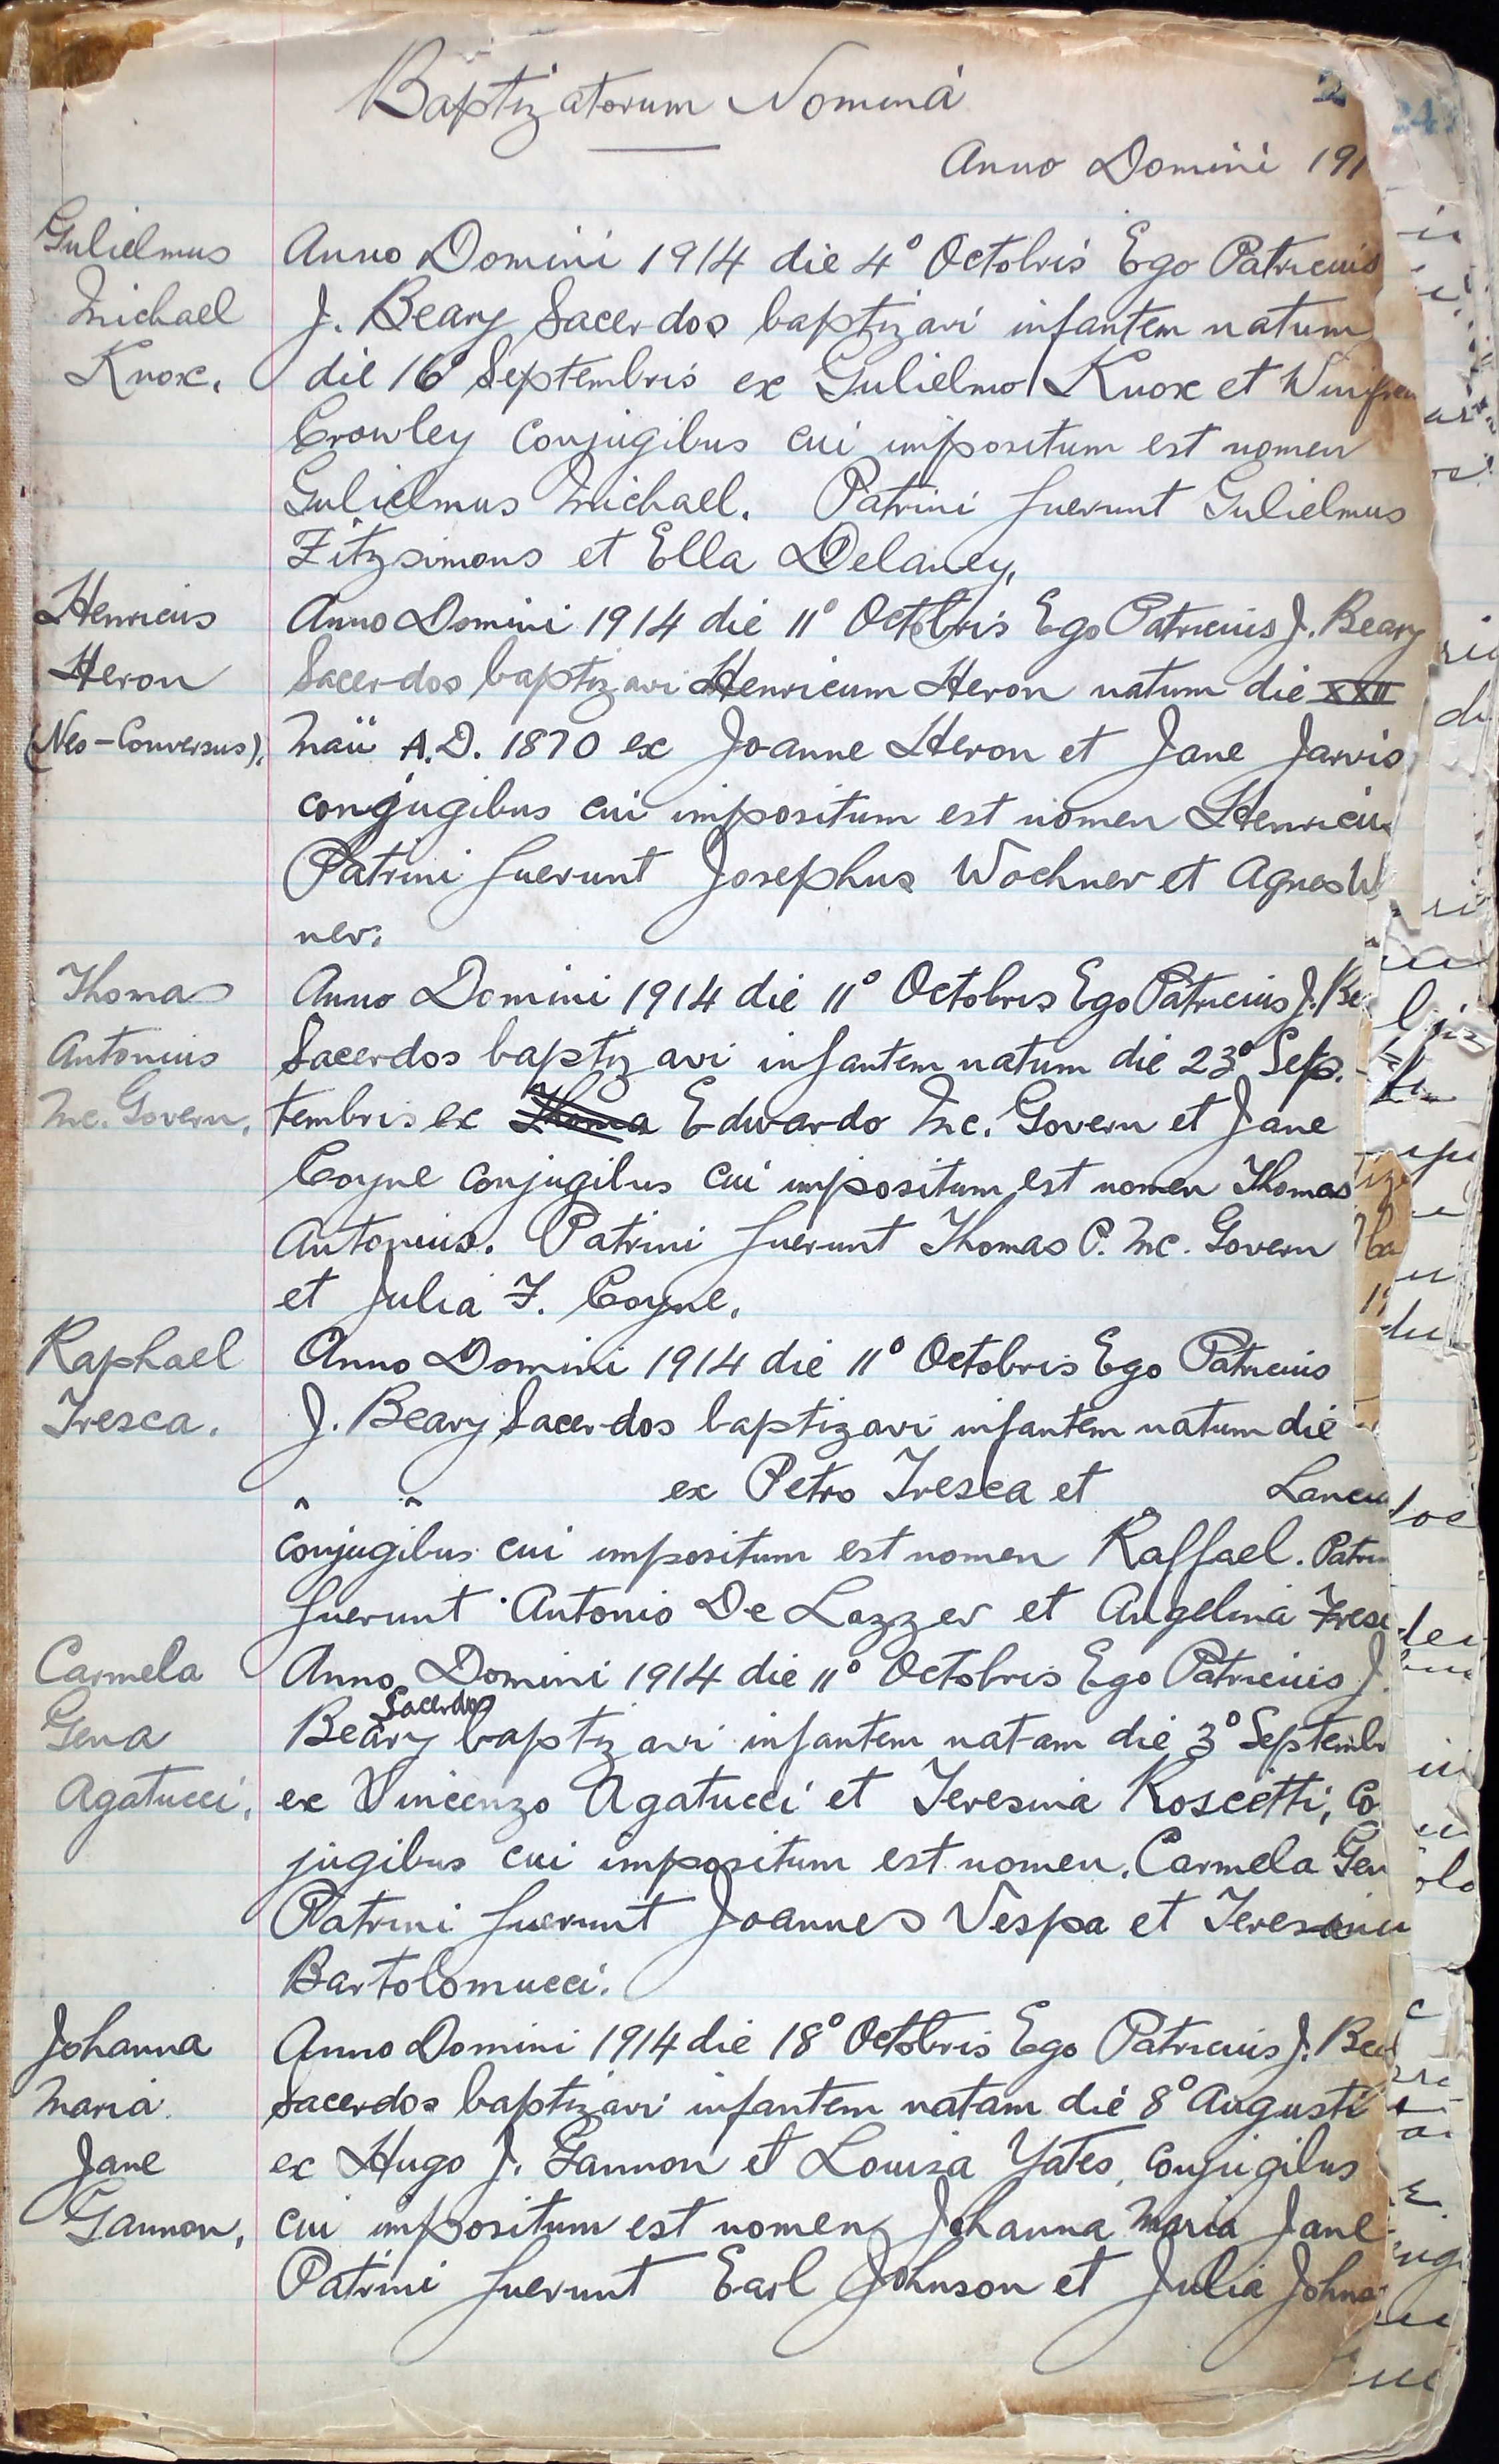 Baptizatorum Nomina
Anno Domini 191
Gulielmus
Michael
Knox.
Anno Domini 1914 die 4° Octobris Ego Patricius
J. Beary Sacerdos baptizavi infantem natum
die 16° Septembris ex Gulielmo Knox et Winifre
Crowley conjugibus cui impositum est nomen
Gulielmus Michael. Patrini fuerunt Gulielmus
Fitzsimons et Ella Delaney.
Henricus
Heron
(Neo-Conversus).
Anno Domini 1914 die 11° Octobris Ego Patricius J. Beary
Sacerdos baptizavi Henricum Heron natum die XXII
Maii A.D. 1870 ex Joanne Heron et Jane Jarvis
conjugibus cui impositum est nomen Henricu
Patrini fuerunt Josephus Wochner et Agnes W
ner.
Thomas
Antonius
Mc. Govern.
Anno Domini 1914 die 11° Octobris Ego Patricius J. Be
Sacerdos baptizavi infantem natum die 23° Sep.
tembris ex Thoma Edwardo Mc. Govern et Jane
Coyne conjugibus cui impositum est nomen Thomas
Antonius. Patrini fuerunt Thomas P. Mc. Govern
et Julia F. Coyne.
Raphael
Tresca.
Anno Domini 1914 die 11° Octobris Ego Patricius
J. Beary Sacerdos baptizavi infantem natum die
ex Petro Tresca et Lanci
conjugibus cui impositum est nomen Raffael. Patrin
fuerunt Antonio De Lazzer et Angelina Tresc
Carmela
Gena
Agatucci.
Anno Domini 1914 die 11° Octobris Ego Patricius J.
Sacerdos
Beary baptizavi infantem natam die 3° Septemb
ex Vincenzo Agatucci et Teresina Roscetti, co
jugibus cui impositum est nomen. Carmela Gen
Patrini fuerunt Joannes Vespa et Teresin
Bartolomucci.
Johanna
Maria
Jane
Gannon.
Anno Domini 1914 die 18° Octobris Ego Patricius J. Bea
Sacerdos baptizavi infantem natam die 8° Augusti
ex Hugo J. Gannon et Louisa Yates, conjugibus
cui impositum est nomen Johanna Maria Jane
Patrini fuerunt Earl Johnson et Julia Johns